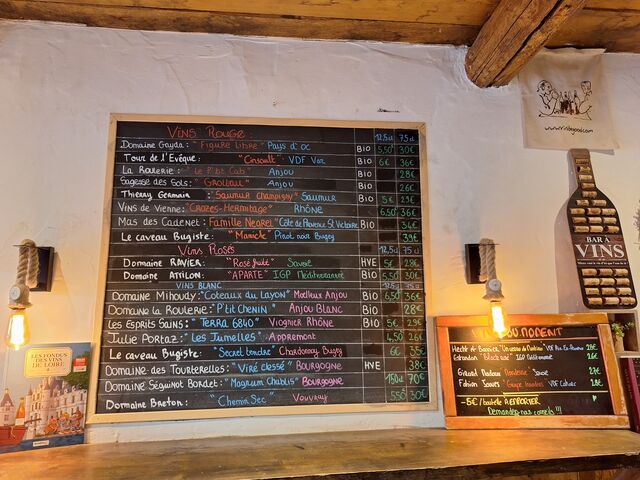 VINS ROUGE: 12.5cl 75cl
Domaine Gayda: "Figure Libre" Pays d'Oc BIO 5,50 30€
Tour de l'Evêque: "Cinsault" VDF Var BIO 6€ 36€
La Routerie: "Le P'tit Cab" Anjou BIO 28€
Sagesse des Sols: "Grolleau" Anjou BIO 26€
Thierry Germain: "Saumur Champigny" Saumur BIO 5€ 29€
Vins de Vienne: "Crozes-Hermitage" Rhône 6,50 36€
Mas des Cadenet: Famille Negrel "Côte de Provence St Victoire BIO 34€
Le caveau Bugiste: "Manicle" Pinot noir Bugey 39€
VINS ROSÉS 12.5d 75cl
Domaine RAVIER: "Rosé fruité" Savoie HVE 5€ 29€
Domaine ATTILON: "APARTE" IGP Méditerranée BIO 5,50 30€
VINS BLANC
Domaine Mihoudy: "Coteaux du Layon" Moelleux Anjou BIO 6,50 36€
Domaine la Routerie: "P'tit Chenin" Anjou Blanc BIO 28€
Les Esprits Sains: "Terra 6840" Viognier Rhône BIO 5€ 29€
Julie Portaz: "Les Jumelles" Appremont 4,50 26€
Le caveau Bugiste: "Secret tendre" Chardonnay Bugey 6€ 35€
Domaine des Tourterelles: "Viré clessé" Bourgogne HVE 38€
Domaine Séguinot Bordet: "Magnum Chablis" Bourgogne 150cl 70€
Domaine Breton: "Chemin Sec" Vouvray 5,50 30€
www.vinsbegood.com
BAR À
VINS
DU MOMENT
-5€ / bouteille À EMPORTER
Demandez-nous conseils !!!
LES FONDUS DES VINS
DE LOIRE